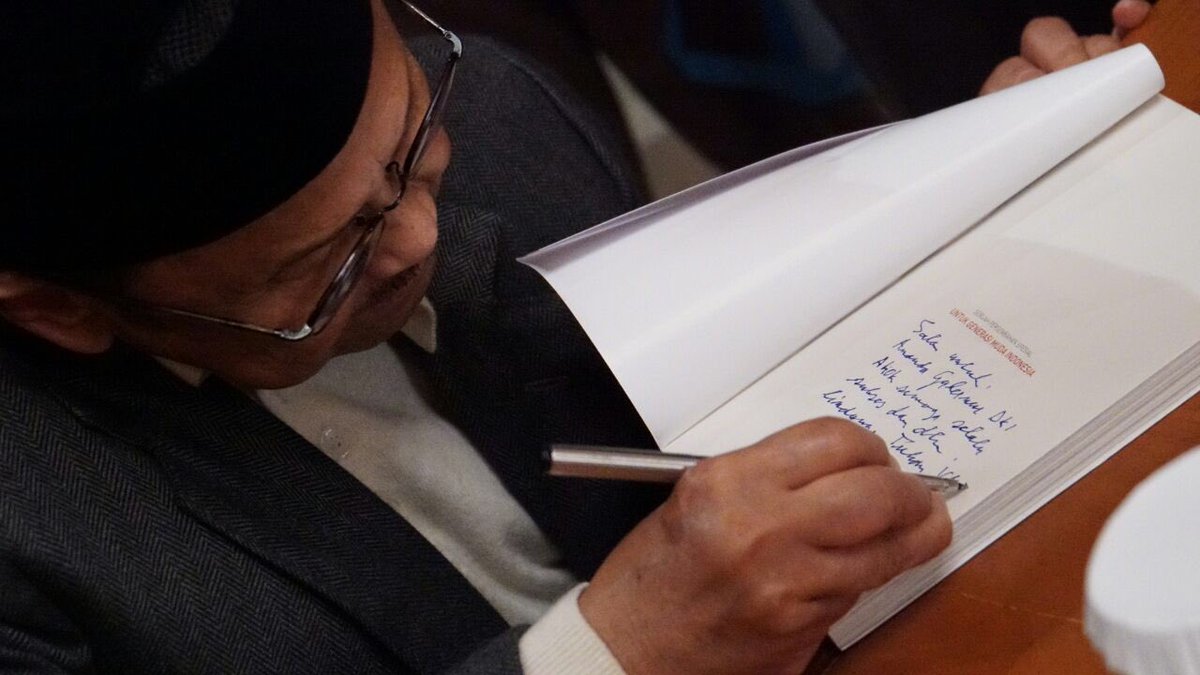 UNTUK GENERASI MUDA INDONESIA
Salam untuk
Ananda Gubernur DKI
Ahok semoga selalu
sukses dan dlm
lindungan Tuhan